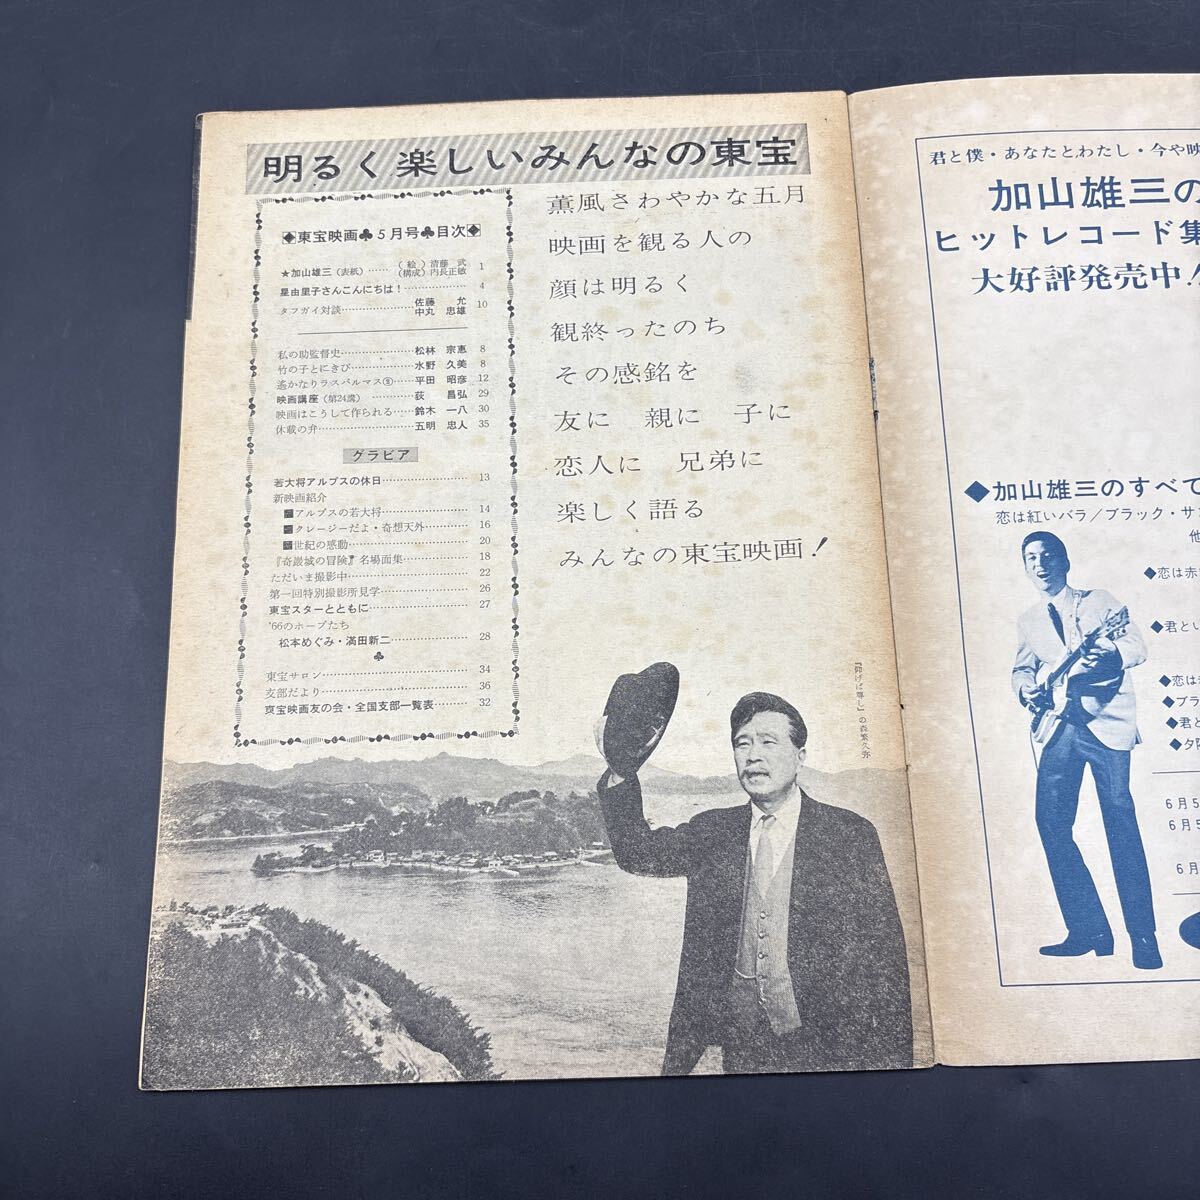 明るく楽しいみんなの東宝
◆東宝映画♣5月号♣目次◆
★加山雄三(表紙)……(絵)清藤 武 1
(構成)内長正敏
星由里子さんこんにちは!…………4
タフガイ対談………………佐藤 允 10
中丸 忠雄
私の助監督史………………松林 宗恵 8
竹の子とにきび………………水野 久美 8
遙かなりラスパルマス⑧………平田 昭彦 12
映画講座(第24講)………………荻 昌弘 29
映画はこうして作られる……鈴木 一八 30
休載の弁………………五明 忠人 35
グラビア
若大将アルプスの休日………………13
新映画紹介
■アルプスの若大将………………14
■クレージーだよ・奇想天外………16
■世紀の感動………………20
『奇巌城の冒険』名場面集………18
ただいま撮影中………………22
第一回特別撮影所見学………………26
東宝スターとともに………………27
'66のホープたち
松本めぐみ・満田新二………………28
♣
東宝サロン………………34
支部だより………………36
東宝映画友の会・全国支部一覧表………32
薫風さわやかな五月
映画を観る人の
顔は明るく
観終ったのち
その感銘を
友に 親に 子に
恋人に 兄弟に
楽しく語る
みんなの東宝映画!
『仰げば尊し』の森繁久弥
君と僕・あなたとわたし・今や映
加山雄三の
ヒットレコード集
大好評発売中!
◆加山雄三のすべて
恋は紅いバラ/ブラック・サン
他
◆恋は赤
◆君とい
◆恋は
◆ブラ
◆君と
◆夕陽
6月5
6月5
6月